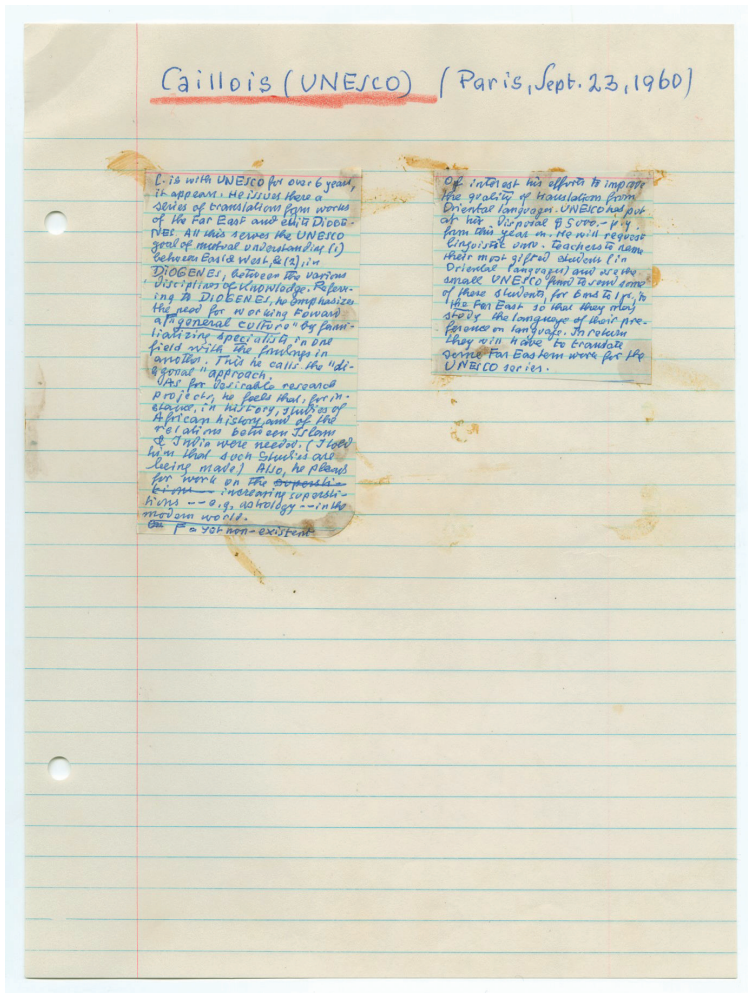 Caillois (UNESCO) (Paris, Sept. 23, 1960)
C. is with UNESCO for over 6 years,
it appears. He issues there a
series of translations from works
of the Far East and edits DIOGE-
NES. All this serves the UNESCO
goal of mutual understanding (1)
between East & West, & (2), in
DIOGENES, between the various
disciplines of knowledge. Referr-
ing to DIOGENES, he emphasizes
the need for working toward
a "general culture" by fami-
liarizing specialists in one
field with the findings in
another. This he calls the "di-
agonal" approach.
As for desirable research
projects, he feels that, for in-
stance, in history, studies of
African history, and of the
relations between Islam
& India were needed. (I told
him that such studies are
being made) Also, he pleads
for work on the supersti-
tions increasing supersti-
tions -- e.g. astrology -- in the
modern world.
a yet non-existent
Of interest his efforts to improve
the quality of translations from
Oriental languages. UNESCO has put
at his disposal $ 5000.-
from this year on. He will request
linguistic univ. teachers to name
their most gifted students (in
Oriental languages) and use the
small UNESCO fund to send some
of these students for 6 mos to 1 yr, to
the Far East so that they may
study the language of their pre-
ference on language. In return
they will have to translate
some Far Eastern work for the
UNESCO series.